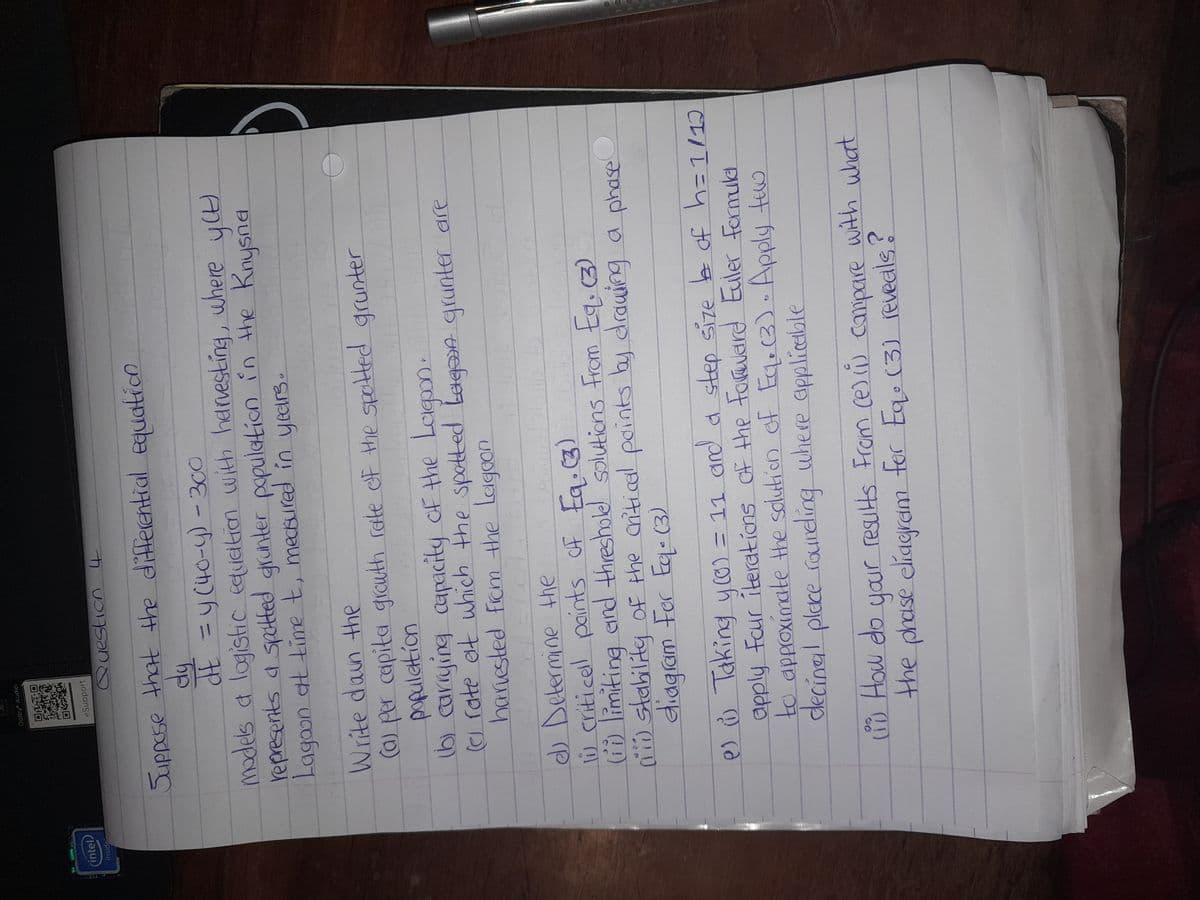 intel
inside
eSupport
Question 4
Suppose that the differential equation
dy
dt = y(40-y) - 300
models a logistic equation with harvesting, where y(t)
represents a spotted grunter population in the Knysna
Lagoon at time t, measured in years.
Write down the
(a) per capita growth rate of the spotted grunter
population
(b) carrying capacity of the Lagoon.
(c) rate at which the spotted grunter are
harvested from the Lagoon
d) Determine the
(i) critical points of Eq.(3)
(ii) limiting and threshold solutions from Eq.(3)
(iii) stability of the critical points by drawing a phase
diagram for Eq.(3)
e) (i) Taking y(0) = 11 and a step size of h=1/12
apply four iterations of the forward Euler formula
to approximate the solution of Eq.(3). Apply two
decimal place rounding where applicable
(ii) How do your results from (e)(i) compare with what
the phase diagram for Eq.(3) reveals?